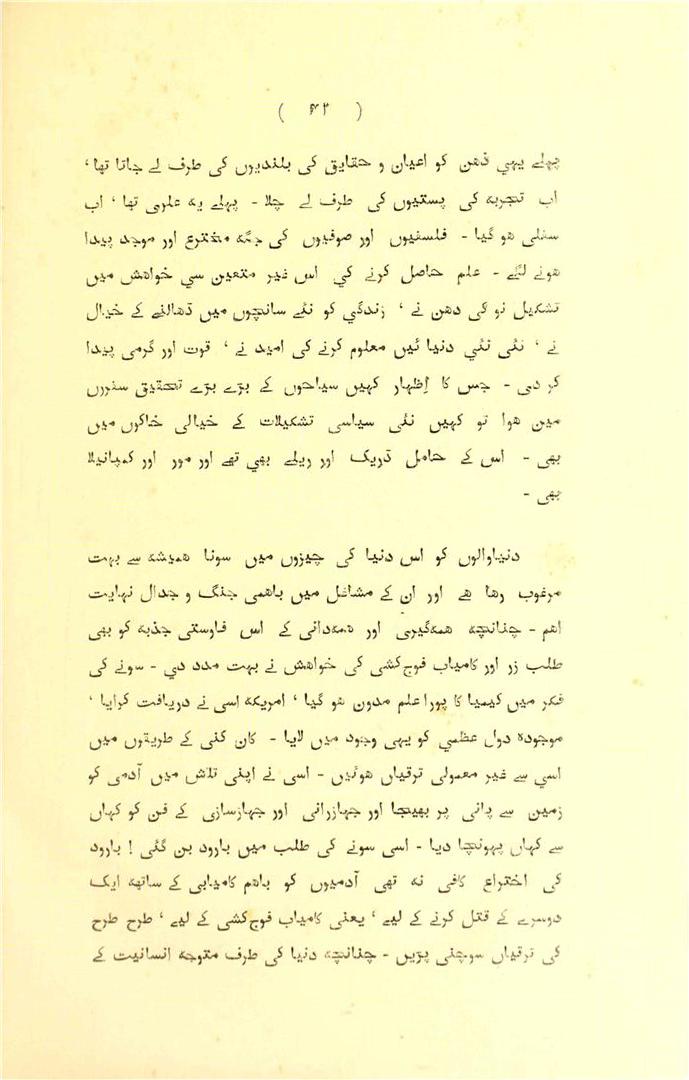 ( ۴۲ )
پہلے یہی ذهن کو اعیان و حقایق کی بلندیوں کی طرف لے جاتا تھا ،
اب تجربہ کی پستیوں کی طرف لے چلا - پہلے یہ علوی تھا ، اب
سفلی هو گیا - فلسفیوں اور صوفیوں کی جگہ مخترع اور موجد پیدا
هونے لگے - علم حاصل کرنے کی اس غیر متعین سی خواهش میں
تشکیل نو کی دهن نے ، زندگی کو نئے سانچوں میں ڈهالنے کے خیال
نے ، نئی نئی دنیا ئیں معلوم کرنے کی امید نے ، قوت اور گرمی پیدا
کر دی - جس کا اِظهار کہیں سیاحوں کے بڑے بڑے تحقیقی سفروں
مین هوا تو کہیں نئی سیاسی تشکیلات کے خیالی خاکوں میں
بھی - اس کے حامل ڈریک اور ریلے بھی تھے اور مور اور کمپانیلا
بھی -
دنیاوالوں کو اس دنیا کی چیزوں میں سونا همیشہ سے بہت
مرغوب رها هے اور ان کے مشاغل میں باهمی جنگ و جدال نہایت
اهم - چنانچہ همہ‌گیری اور همہ‌دانی کے اس فاوستی جذبہ کو بھی
طلب زر اور کامیاب فوج‌کشی کی خواهش نے بہت مدد دی - سونے کی
فکر میں کیمیا کا پورا علم مدون هو گیا ، امریکہ اسی نے دریافت کرایا ،
موجودہ دول عظمی کو یہی وجود میں لایا - کان کنی کے طریقوں میں
اسی سے غیر معمولی ترقیاں هوئیں - اسی نے اپنی تلاش میں آدمی کو
زمین سے پانی پر بھیجا اور جہازرانی اور جہازسازی کے فن کو کہاں
سے کہاں پہونچا دیا - اسی سونے کی طلب میں بارود بن گئی ! بارود
کی اختراع کافی نہ تھی آدمیوں کو باهم کامیابی کے ساتھ ایک
دوسرے کے قتل کرنے کے لیے ، یعنی کامیاب فوج‌کشی کے لیے ، طرح طرح
کی ترقیاں سوچنی پڑیں - چنانچہ دنیا کی طرف متوجہ انسانیت کے